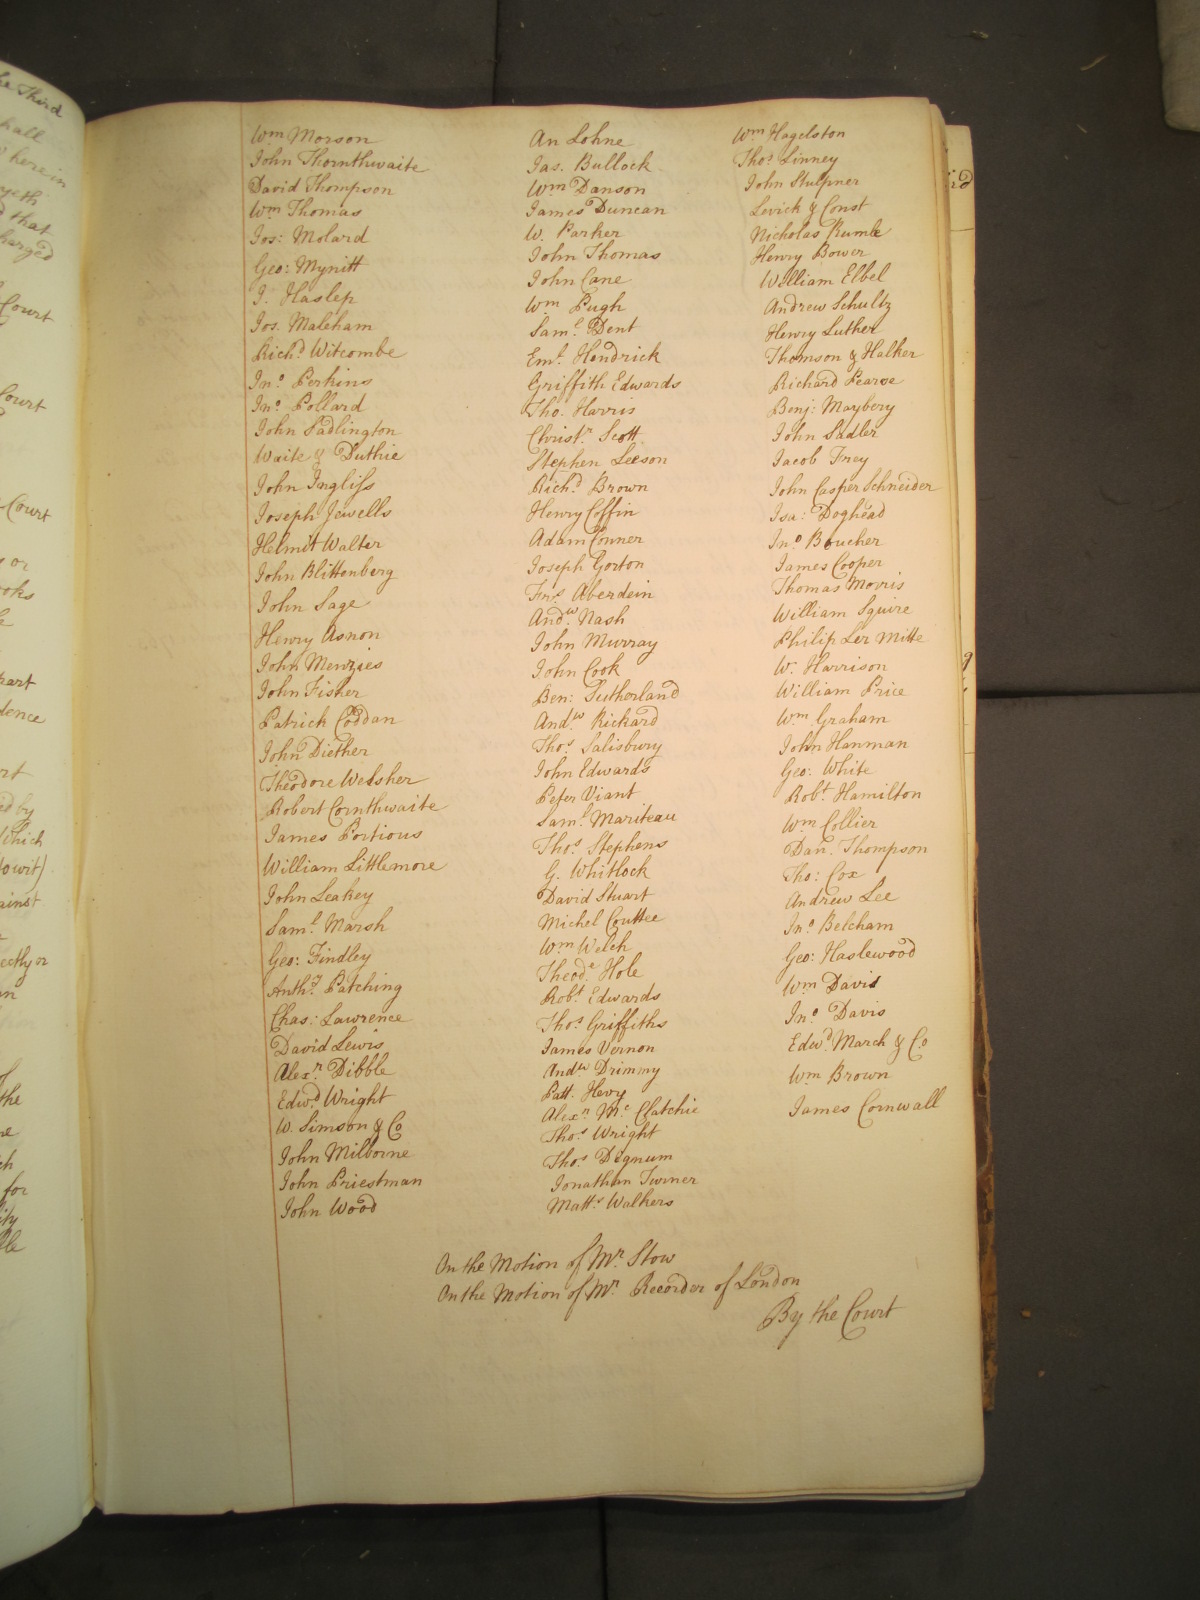 Wm Morson
John Thornthwaite
David Thompson
Wm Thomas
Jos: Molard
Geo: Mynitt
J. Haslep
Jos. Maleham
Richd. Witcombe
Jno. Perkins
Jno. Pollard
John Sadlington
Waite & Duthie
John Inglifs
Joseph Jewells
Helmit Walter
John Blittenberg
John Sage
Henry Asnon
John Menzies
John Fisher
Patrick Coddan
John Diether
Theodore Welsher
Robert Cornthwaite
James Portious
William Littlemore
John Leakey
Saml. Marsh
Geo: Findley
Anthy. Patching
Chas: Lawrence
David Lewis
Alexr. Dibble
Edwd. Wright
W. Simson & Co
John Milborne
John Priestman
John Wood
An Lohne
Jas. Bullock
Wm Danson
James Duncan
W. Parker
John Thomas
John Cane
Wm Pugh
Saml. Dent
Eml. Hendrick
Griffith Edwards
Tho. Harris
Christr. Scott
Stephen Leeson
Richd. Brown
Henry Coffin
Adam Conner
Joseph Gorton
Frs. Aberdein
Andw. Nash
John Murray
John Cook
Ben: Sutherland
Andw Rickard
Thos. Salisbury
John Edwards
Peter Viant
Saml. Mariteau
Thos. Stephens
G. Whitlock
David Stuart
Michel Couttee
Wm Welch
Theode. Hole
Robt. Edwards
Thos. Griffiths
James Vernon
Andw Drimmy
Patt. Hevy
Alexr. Mc. Clatchie
Thos. Wright
Thos. Dignum
Jonathan Turner
Matts. Walkers
Wm Hagelston
Thos. Linney
John Stulpner
Levick & Const
Nicholas Rumble
Henry Bower
William Elbel
Andrew Schultz
Henry Luther
Thomson & Halker
Richard Pearse
Benj: Maybery
John Sadler
Jacob Frey
John Casper Schneider
Isa: Doghead
Jno. Boucher
James Cooper
Thomas Morris
William Squire
Philip Ler Mitte
W. Harrison
William Price
Wm Graham
John Hanman
Geo: White
Robt. Hamilton
Wm Collier
Dan. Thompson
Tho: Cox
Andrew Lee
Jno. Belcham
Geo: Haslewood
Wm Davis
Jno. Davis
Edwd. March & Co
Wm Brown
James Cornwall
On the Motion of Mr. Stow
On the Motion of Mr. Recorder of London
By the Court